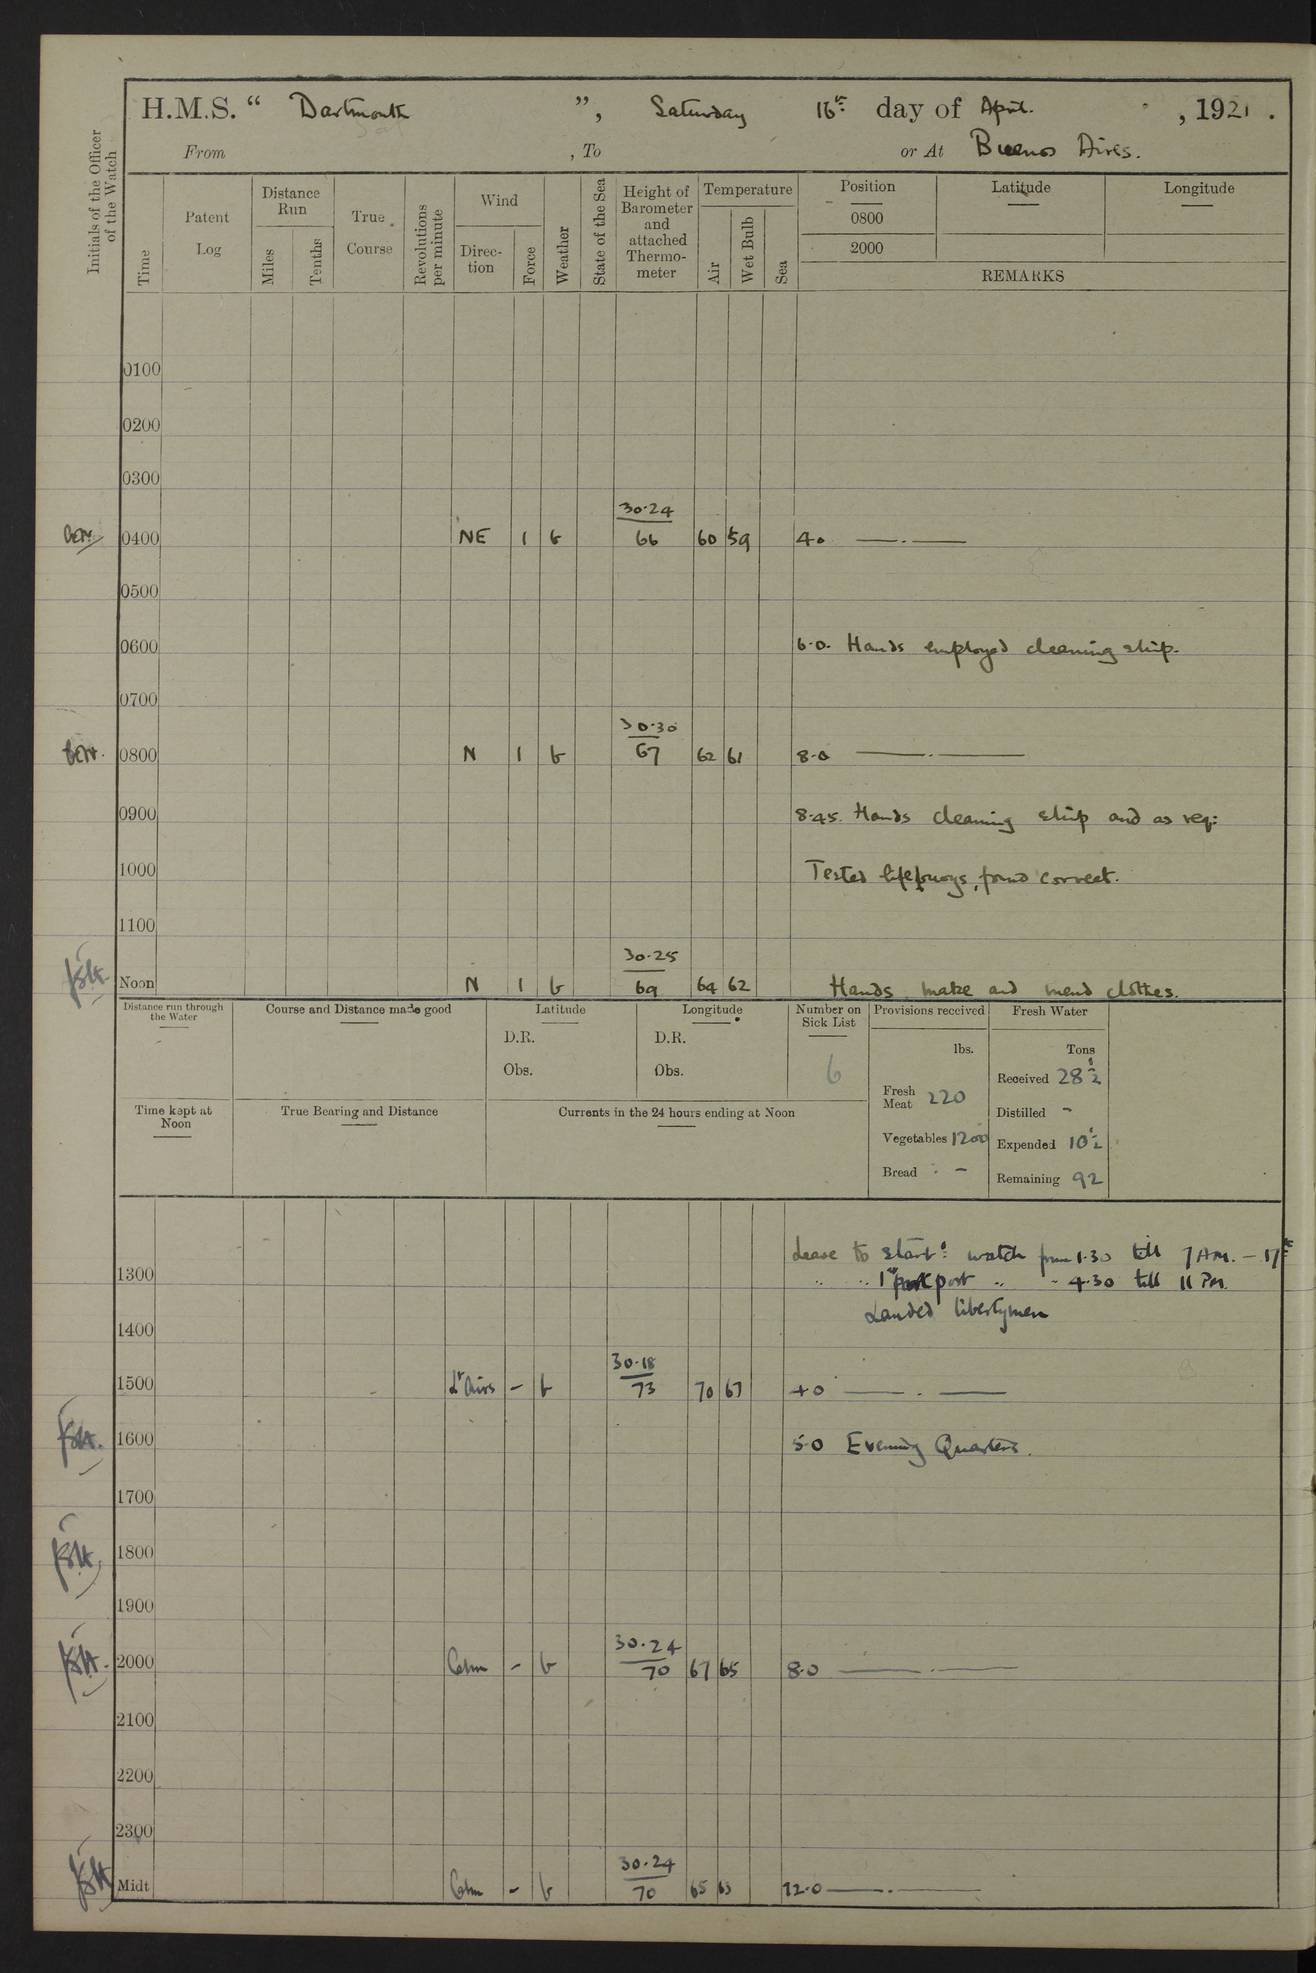 H.M.S. “ Dartmouth ”, Saturday 16th day of April. , 1921 .
From , To or At Buenos Aires.
Initials of the Officer of the Watch
Time
Patent Log
Distance Run
Miles
Tenths
True Course
Revolutions per minute
Wind
Direction
Force
Weather
State of the Sea
Height of Barometer and attached Thermometer
Temperature
Air
Wet Bulb
Sea
Position
0800
2000
Latitude
Longitude
REMARKS
0100
0200
0300
30.24
0400 NE 1 b 66 60 59 4.0 —.—
0500
0600 6.0. Hands employed cleaning ship.
0700
30.30
0800 N 1 b 67 62 61 8.0 —.—
0900 8.45. Hands cleaning ship and as req:
1000 Tested lifebuoys, found correct.
1100
30.25
Noon N 1 b 69 64 62 Hands make and mend clothes.
Distance run through the Water
Course and Distance made good
Latitude
D.R.
Obs.
Longitude
D.R.
Obs.
Number on Sick List
6
Provisions received
lbs.
Fresh Meat 220
Vegetables 1200
Bread -
Fresh Water
Tons
Received 28½
Distilled -
Expended 10½
Remaining 92
Time kept at Noon
True Bearing and Distance
Currents in the 24 hours ending at Noon
Leave to starb: watch from 1.30 till 7 AM. - 17th
1300 " " 1st part port " " 4.30 till 11 PM.
Landed libertymen
1400
30.18
1500 Lt Airs - b 73 70 67 4.0 —.—
1600 5.0 Evening Quarters.
1700
1800
1900
30.24
2000 Calm - b 70 67 65 8.0 —.—
2100
2200
2300
30.24
Midt Calm - b 70 65 63 12.0 —.—